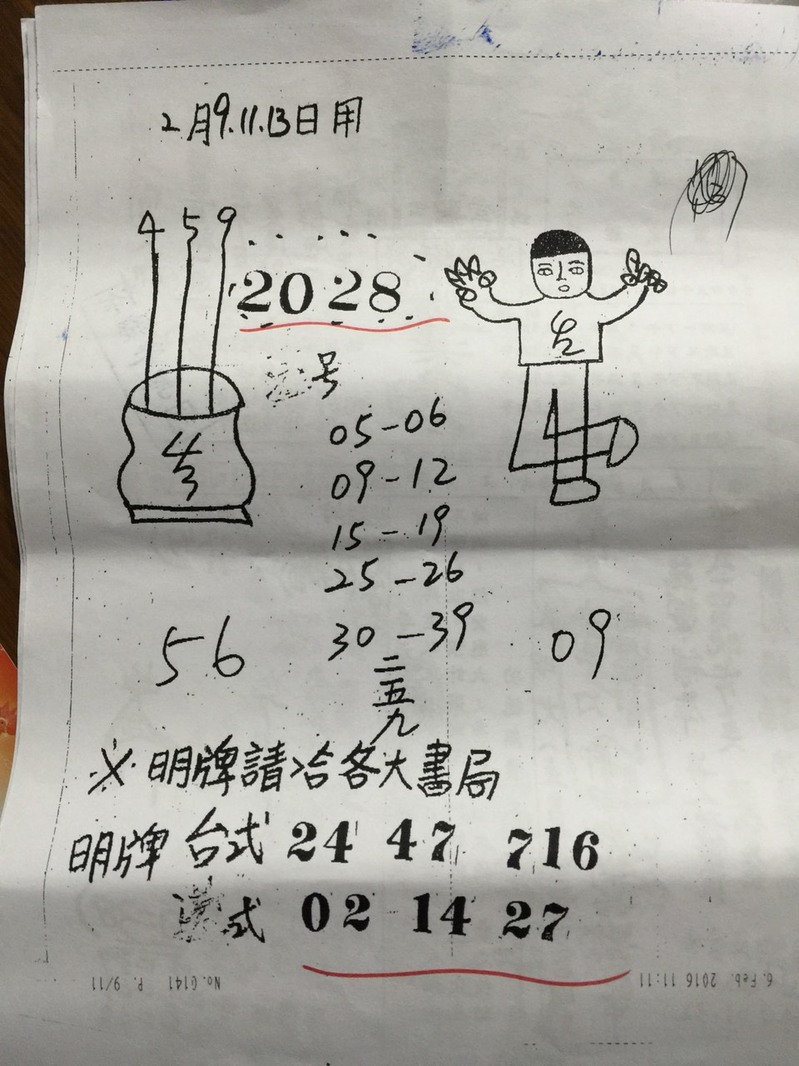 2月9.11.13日用
4 5 9
2028
号
05-06
09-12
15-19
25-26
30-39
56
09
二五九
※明牌請洽各大書局
明牌 台式 24 47 716
式 02 14 27
6. Feb. 2016 11:11 No. 0141 P. 9/11